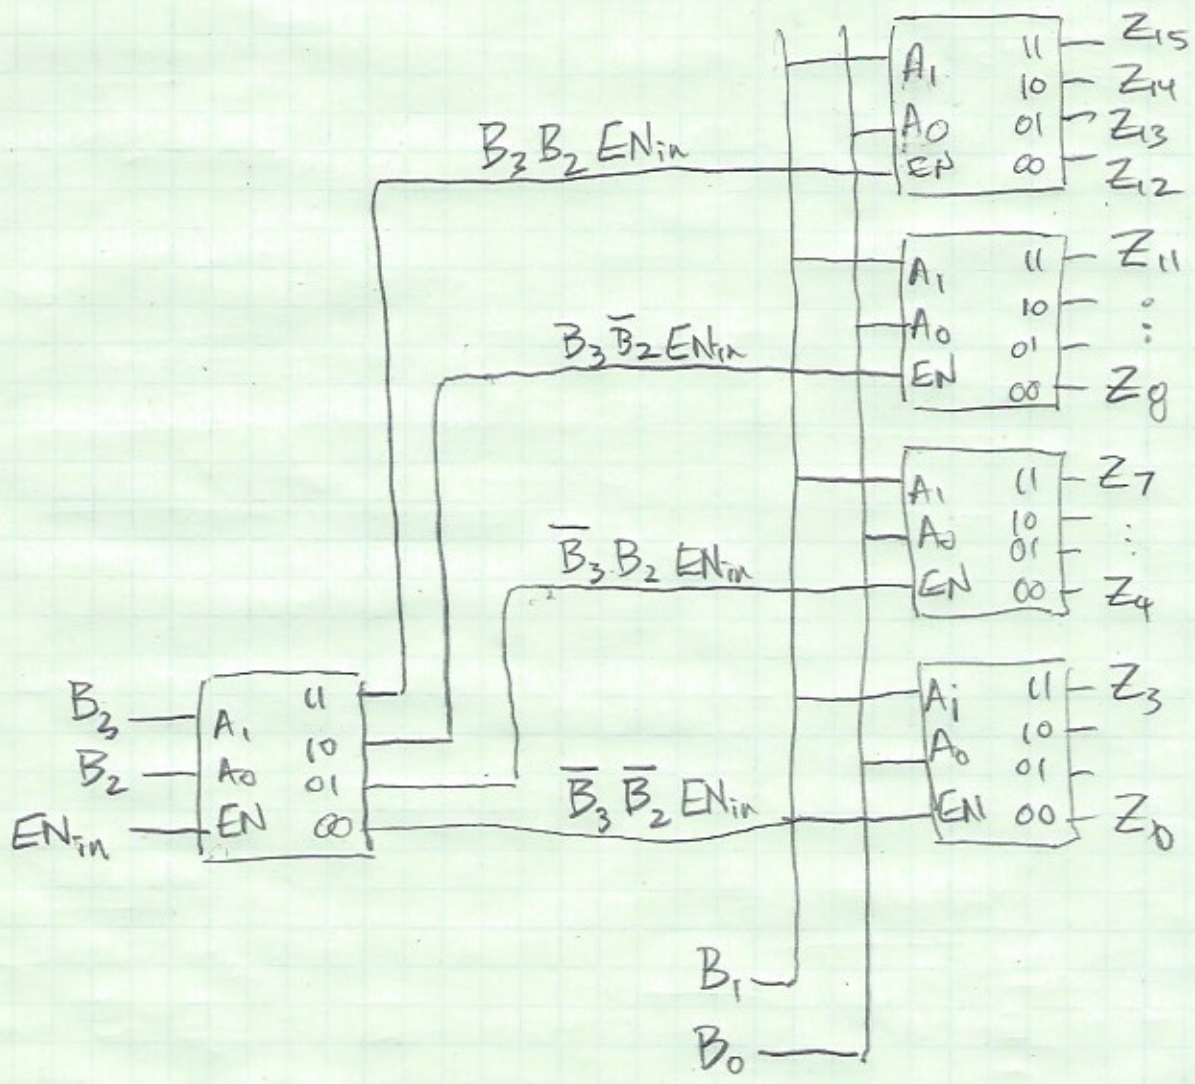 A₁ 11 Z₁₅
10 Z₁₄
A₀ 01 Z₁₃
EN 00 Z₁₂
B₃ B₂ ENᵢₙ
A₁ 11 Z₁₁
10 :
A₀ 01
EN 00 Z₈
B₃ B̅₂ ENᵢₙ
A₁ 11 Z₇
10
A₀ 01 :
EN 00 Z₄
B̅₃ B₂ ENᵢₙ
A₁ 11 Z₃
10
A₀ 01
EN 00 Z₀
B̅₃ B̅₂ ENᵢₙ
B₃ A₁ 11
10
B₂ A₀ 01
ENᵢₙ EN 00
B₁
B₀